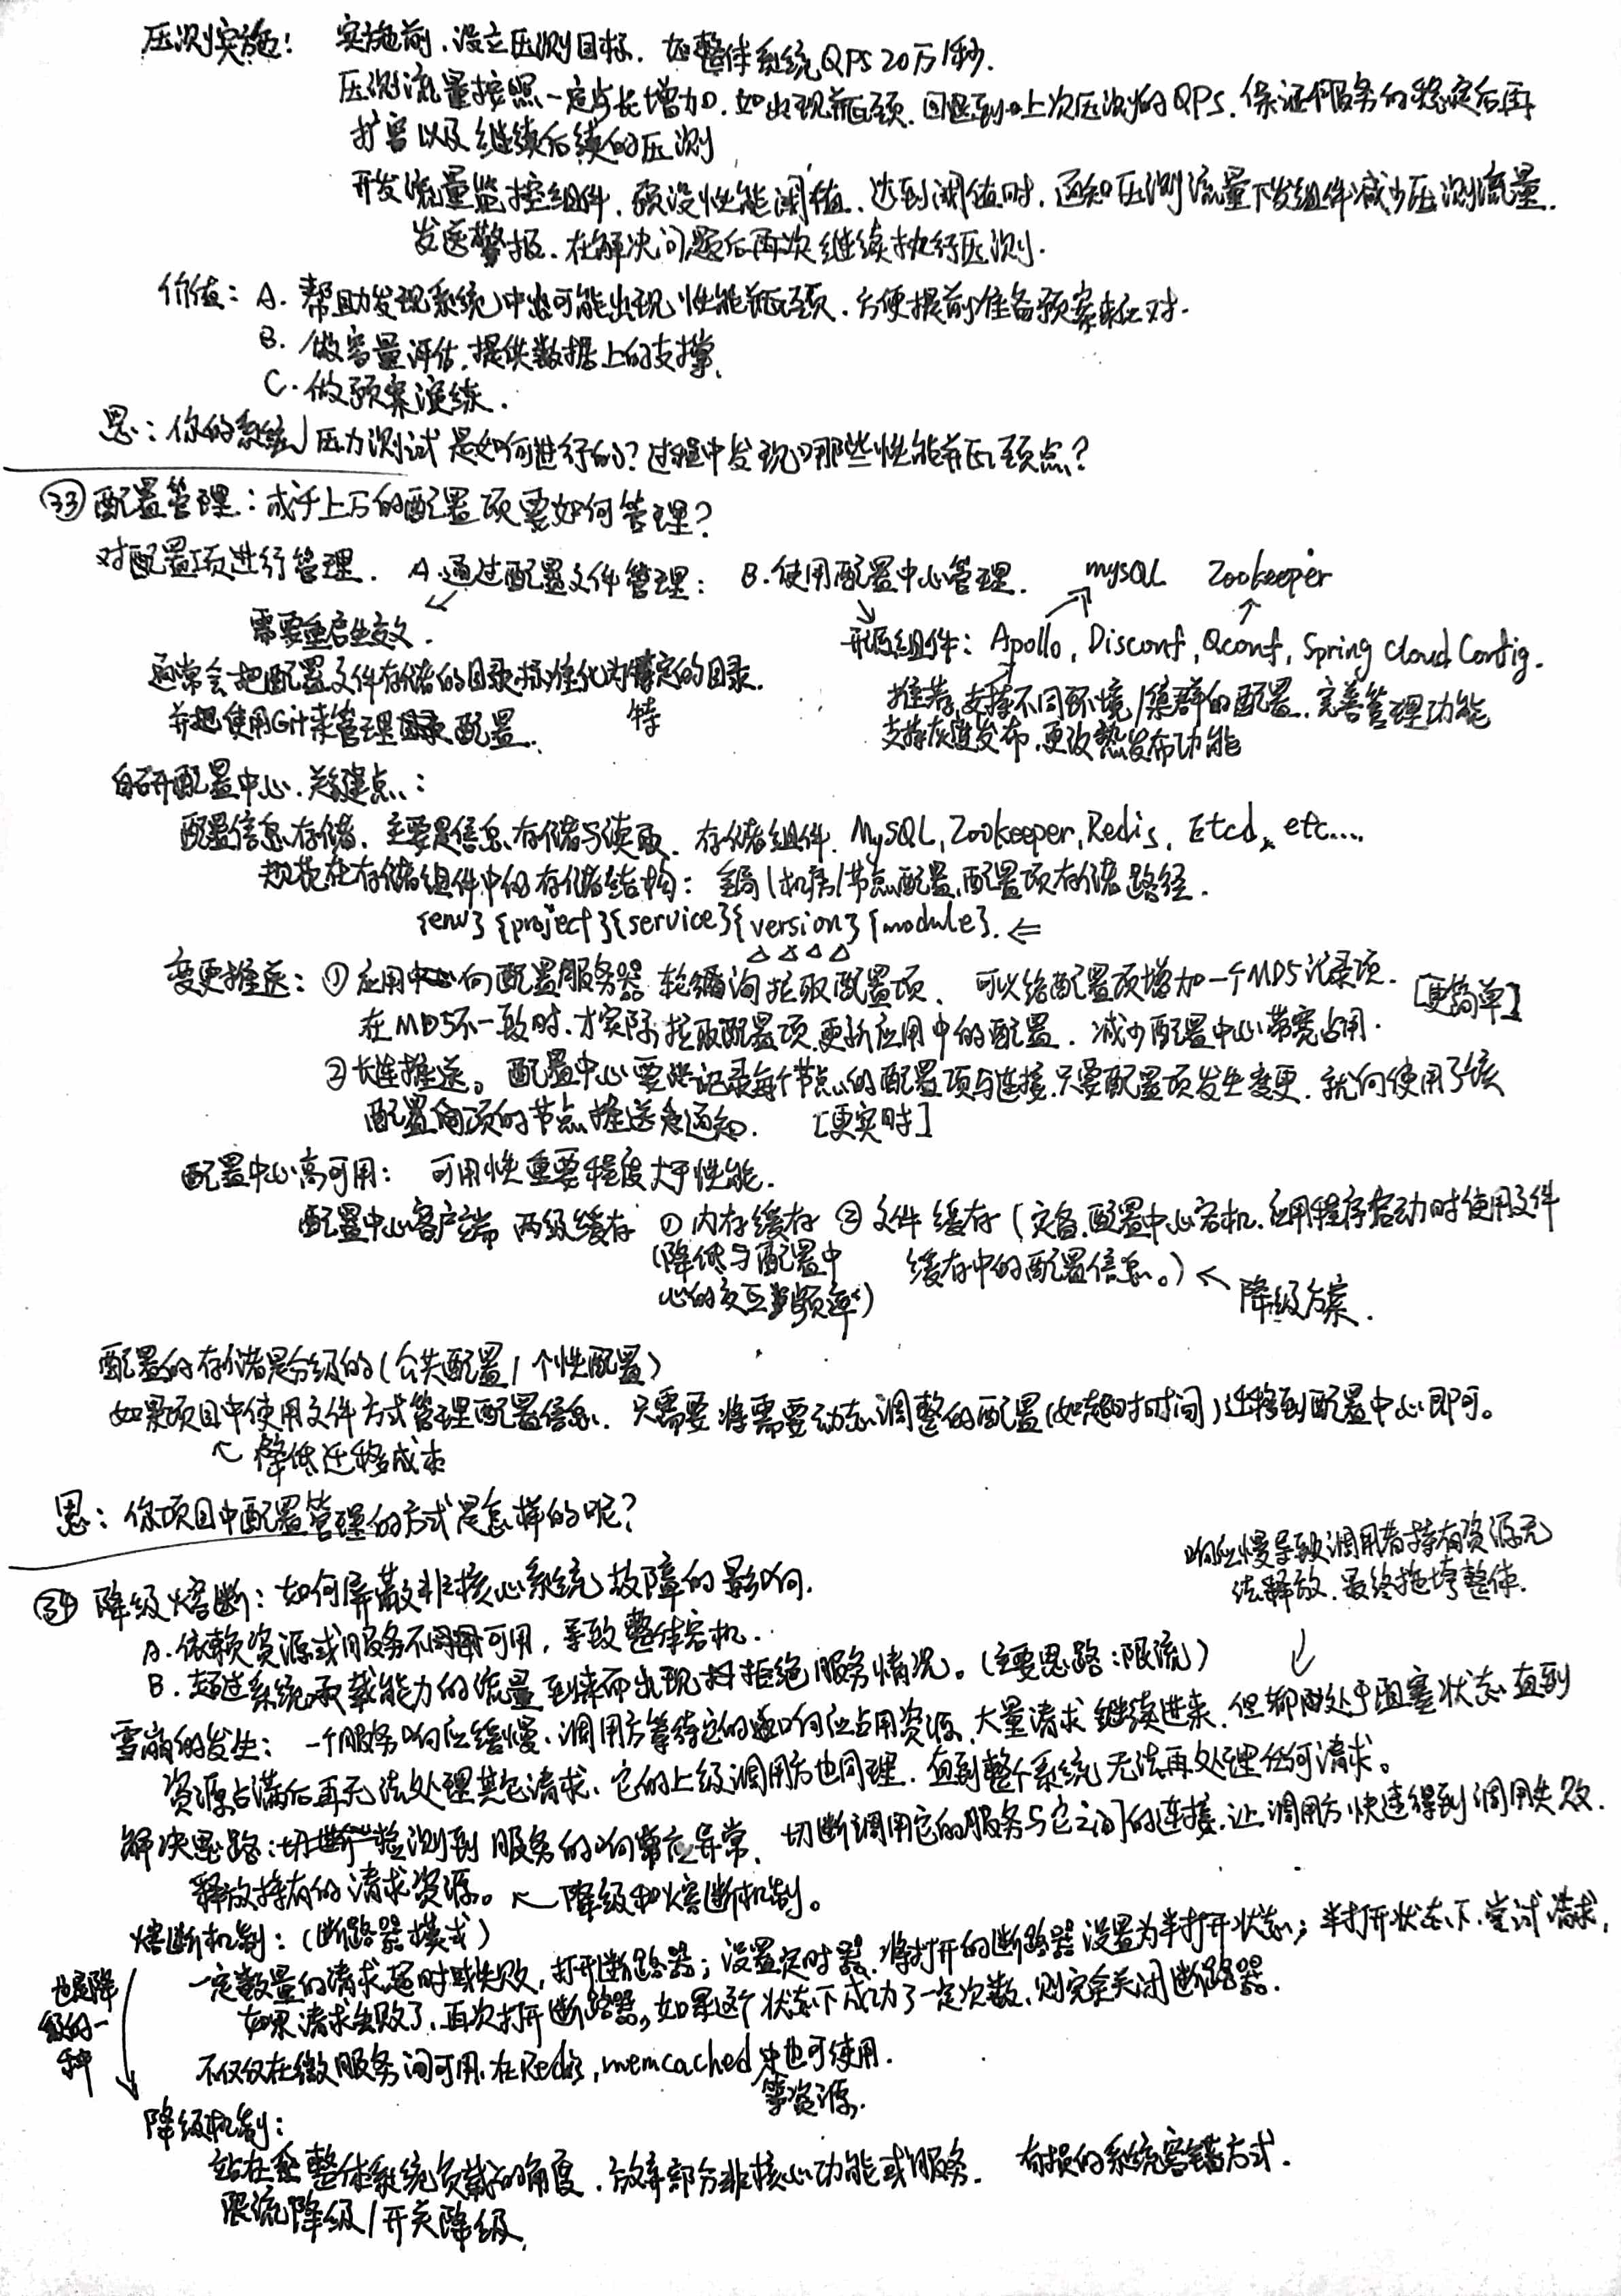 压测实施: 实施前,设立压测目标. 如整体系统QPS 20万/秒.
压测流量按照一定步长增加. 如出现瓶颈. 回退到上次压测的QPS. 保证服务的稳定后再
扩容以及继续后续的压测
开发流量监控组件. 预设性能阈值. 达到阈值时. 通知压测流量下发组件减少压测流量.
发送警报. 在解决问题后再次继续执行压测.
价值: A. 帮助发现系统中可能出现性能瓶颈. 方便提前准备预案来应对.
B. 做容量评估. 提供数据上的支撑.
C. 做预案演练.
思: 你的系统压力测试是如何进行的? 过程中发现哪些性能瓶颈点?
㉝ 配置管理: 成千上万的配置项要如何管理?
对配置项进行管理. A. 通过配置文件管理: B. 使用配置中心管理. mySQL Zookeeper
需要重启生效.
开源组件: Apollo, Disconf, Qconf, Spring Cloud Config.
通常会把配置文件存储的目录标准化为特定的目录.
并使用Git来管理配置.
推荐, 支持不同环境/集群的配置. 完善管理功能
支持灰度发布. 更改热发布功能
自研配置中心. 关键点:
配置信息存储. 主要是信息存储与读取. 存储组件. MySQL, Zookeeper, Redis, Etcd, etc....
规范在存储组件中的存储结构: 全局/机房/节点配置. 配置项存储路径.
{env} {project}{service}{version}{module}. ⇐
变更推送: ① 应用向配置服务器轮询拉取配置项. 可以给配置项增加一个MD5记录项. [更简单]
在MD5不一致时. 才实际拉取配置项. 更新应用中的配置. 减少配置中心带宽占用.
② 长连推送。配置中心要记录每个节点的配置项与连接. 只要配置项发生变更. 就向使用了该
配置项的节点推送通知. [更实时]
配置中心高可用: 可用性重要程度大于性能.
配置中心客户端 两级缓存 ① 内存缓存 ② 文件缓存 (灾备. 配置中心宕机. 应用程序启动时使用文件
(降低与配置中
心的交互频率)
缓存中的配置信息。) ← 降级方案.
配置的存储是分级的 (公共配置/个性配置)
如果项目中使用文件方式管理配置信息. 只需要将需要动态调整的配置(如超时时间)迁移到配置中心即可。
↖ 降低迁移成本
思: 你项目中配置管理的方式是怎样的呢?
响应慢导致调用者持有资源无
法释放. 最终拖垮整体.
㉞ 降级熔断: 如何屏蔽非核心系统故障的影响.
A. 依赖资源或服务不可用, 导致整体宕机.
B. 超过系统承载能力的流量到来而出现拒绝服务情况。(主要思路: 限流)
雪崩的发生: 一个服务响应缓慢. 调用方等待它的响应占用资源. 大量请求继续进来. 但都处于阻塞状态 直到
资源占满后再无法处理其它请求. 它的上级调用方也同理. 直到整个系统无法再处理任何请求。
解决思路: 检测到服务的响应异常. 切断调用它的服务与它之间的连接. 让调用方快速得到调用失败.
释放持有的请求资源。↖ 降级和熔断机制。
熔断机制: (断路器模式)
一定数量的请求超时或失败, 打开断路器; 设置定时器. 将打开的断路器设置为半打开状态; 半打开状态下. 尝试请求,
如果请求失败了. 再次打开断路器, 如果这个状态下成功了一定次数, 则完全关闭断路器.
也是降
级的一
种
不仅仅在微服务间可用. 在Redis, memcached 中也可使用.
等资源.
降级机制:
站在整体系统负载的角度. 放弃部分非核心功能或服务. 有损的系统容错方式.
限流降级/开关降级.